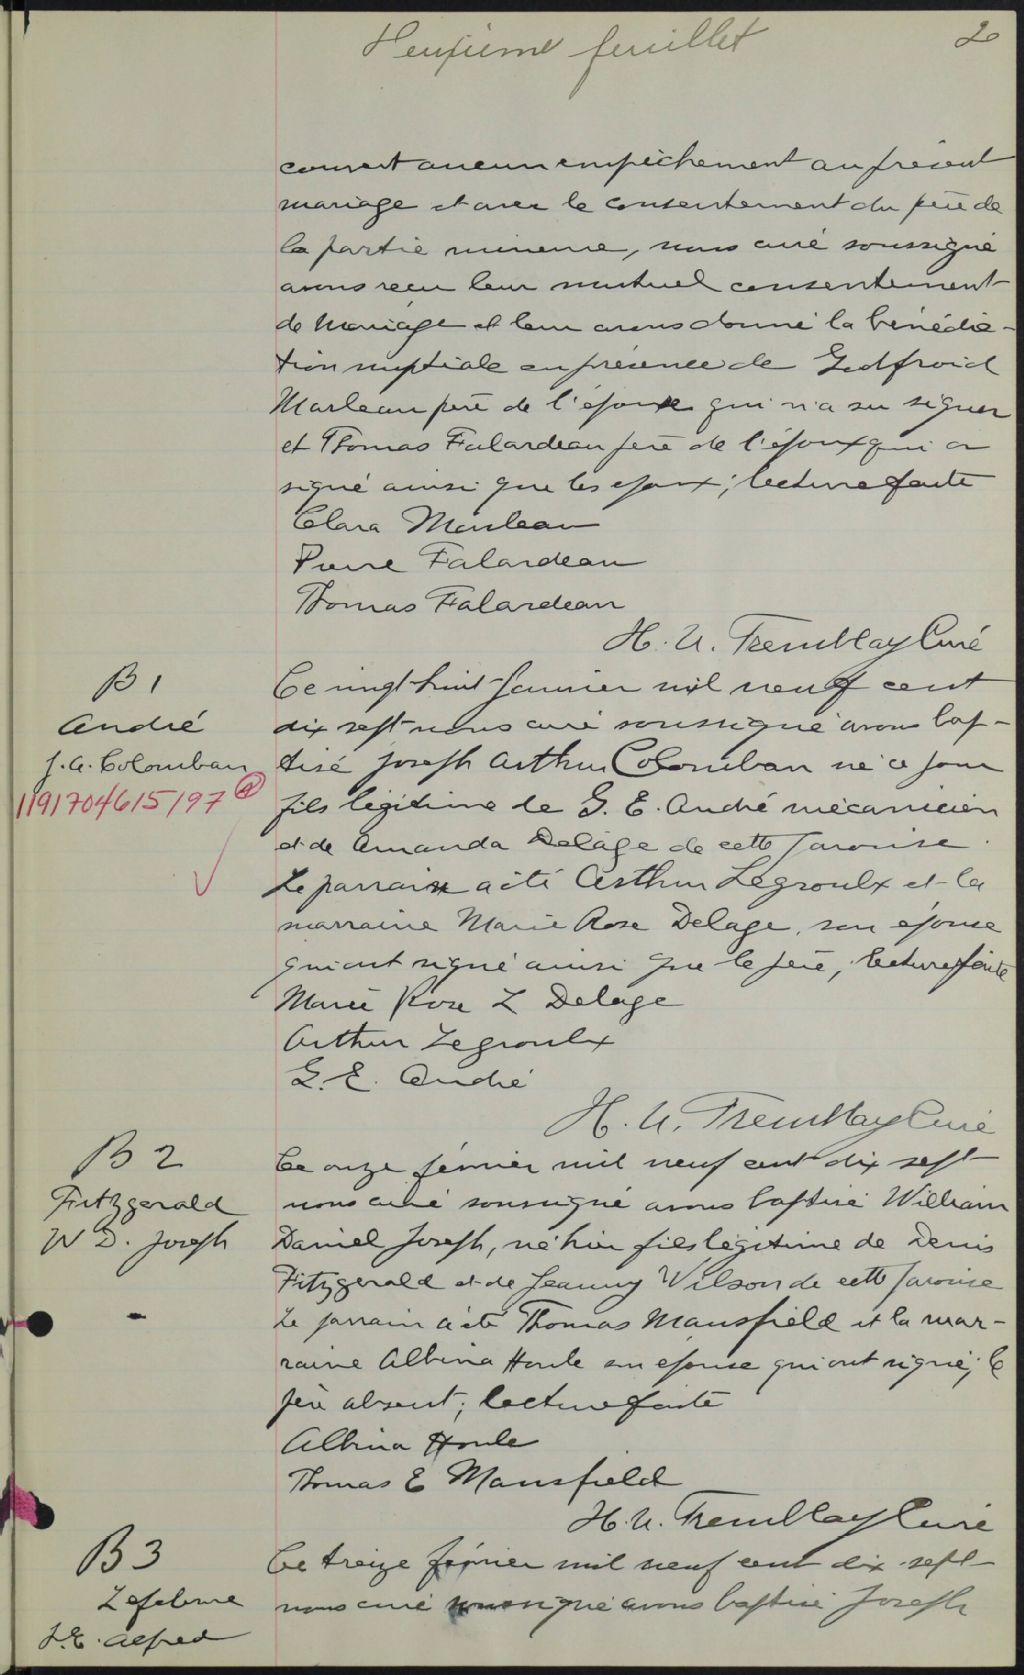 Deuxième feuillet
2
couvert aucun empêchement au présent
mariage et avec le consentement du père de
la partie mineure, nous curé soussigné
avons reçu leur mutuel consentement
de Mariage et leur avons donné la bénédic-
tion nuptiale en présence de Godfroid
Marleau père de l'épouse qui n'a su signer
et Thomas Falardeau père de l'époux qui a
signé ainsi que les époux; lecture faite
Clara Marleau
Pierre Falardeau
Thomas Falardeau
H. U. Tremblay Curé
B 1
André
J. A. Colomban
1191704615197
Ce vingt-huit Janvier mil neuf cent
dix sept nous curé soussigné avons bap-
tisé Joseph Arthur Colomban né ce jour
fils légitime de G. E. André mécanicien
et de Amanda Delâge de cette paroisse.
Le parrain a été Arthur Legroulx et la
marraine Marie Rose Delage, son épouse
qui ont signé ainsi que le père; lecture faite
Marie Rose L Delage
Arthur Legroulx
G. E. André
H. U. Tremblay Curé
B 2
Fitzgerald
W D. Joseph
Ce onze février mil neuf cent dix sept
nous curé soussigné avons baptisé William
Daniel Joseph, né hier fils légitime de Denis
Fitzgerald et de Jeanny Wilson de cette paroisse
Le parrain a été Thomas Mansfield et la mar-
raine Albina Houle son épouse qui ont signé; le
père absent; lecture faite
Albina Houle
Thomas E Mansfield
H. U. Tremblay Curé
B 3
Lefebvre
J. E. Alfred
Ce treize février mil neuf cent dix sept
nous curé soussigné avons baptisé Joseph